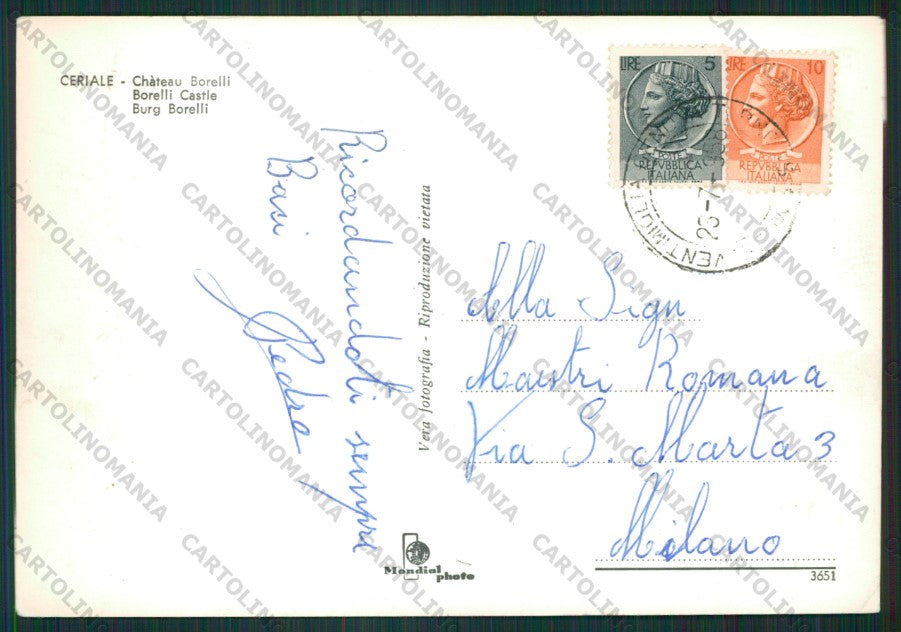 CERIALE - Château Borelli
Borelli Castle
Burg Borelli
LIRE 5
POSTE
REPVBBLICA
ITALIANA
LIRE 10
POSTE
REPVBBLICA
ITALIANA
VENTIMIGLIA
Ricordandoti sempre
Baci
Pedro
Vera fotografia - Riproduzione vietata
Alla Sign
Maestri Romana
Via S. Marta 3
Milano
Mondial photo
3651
CARTOLINOMANIA